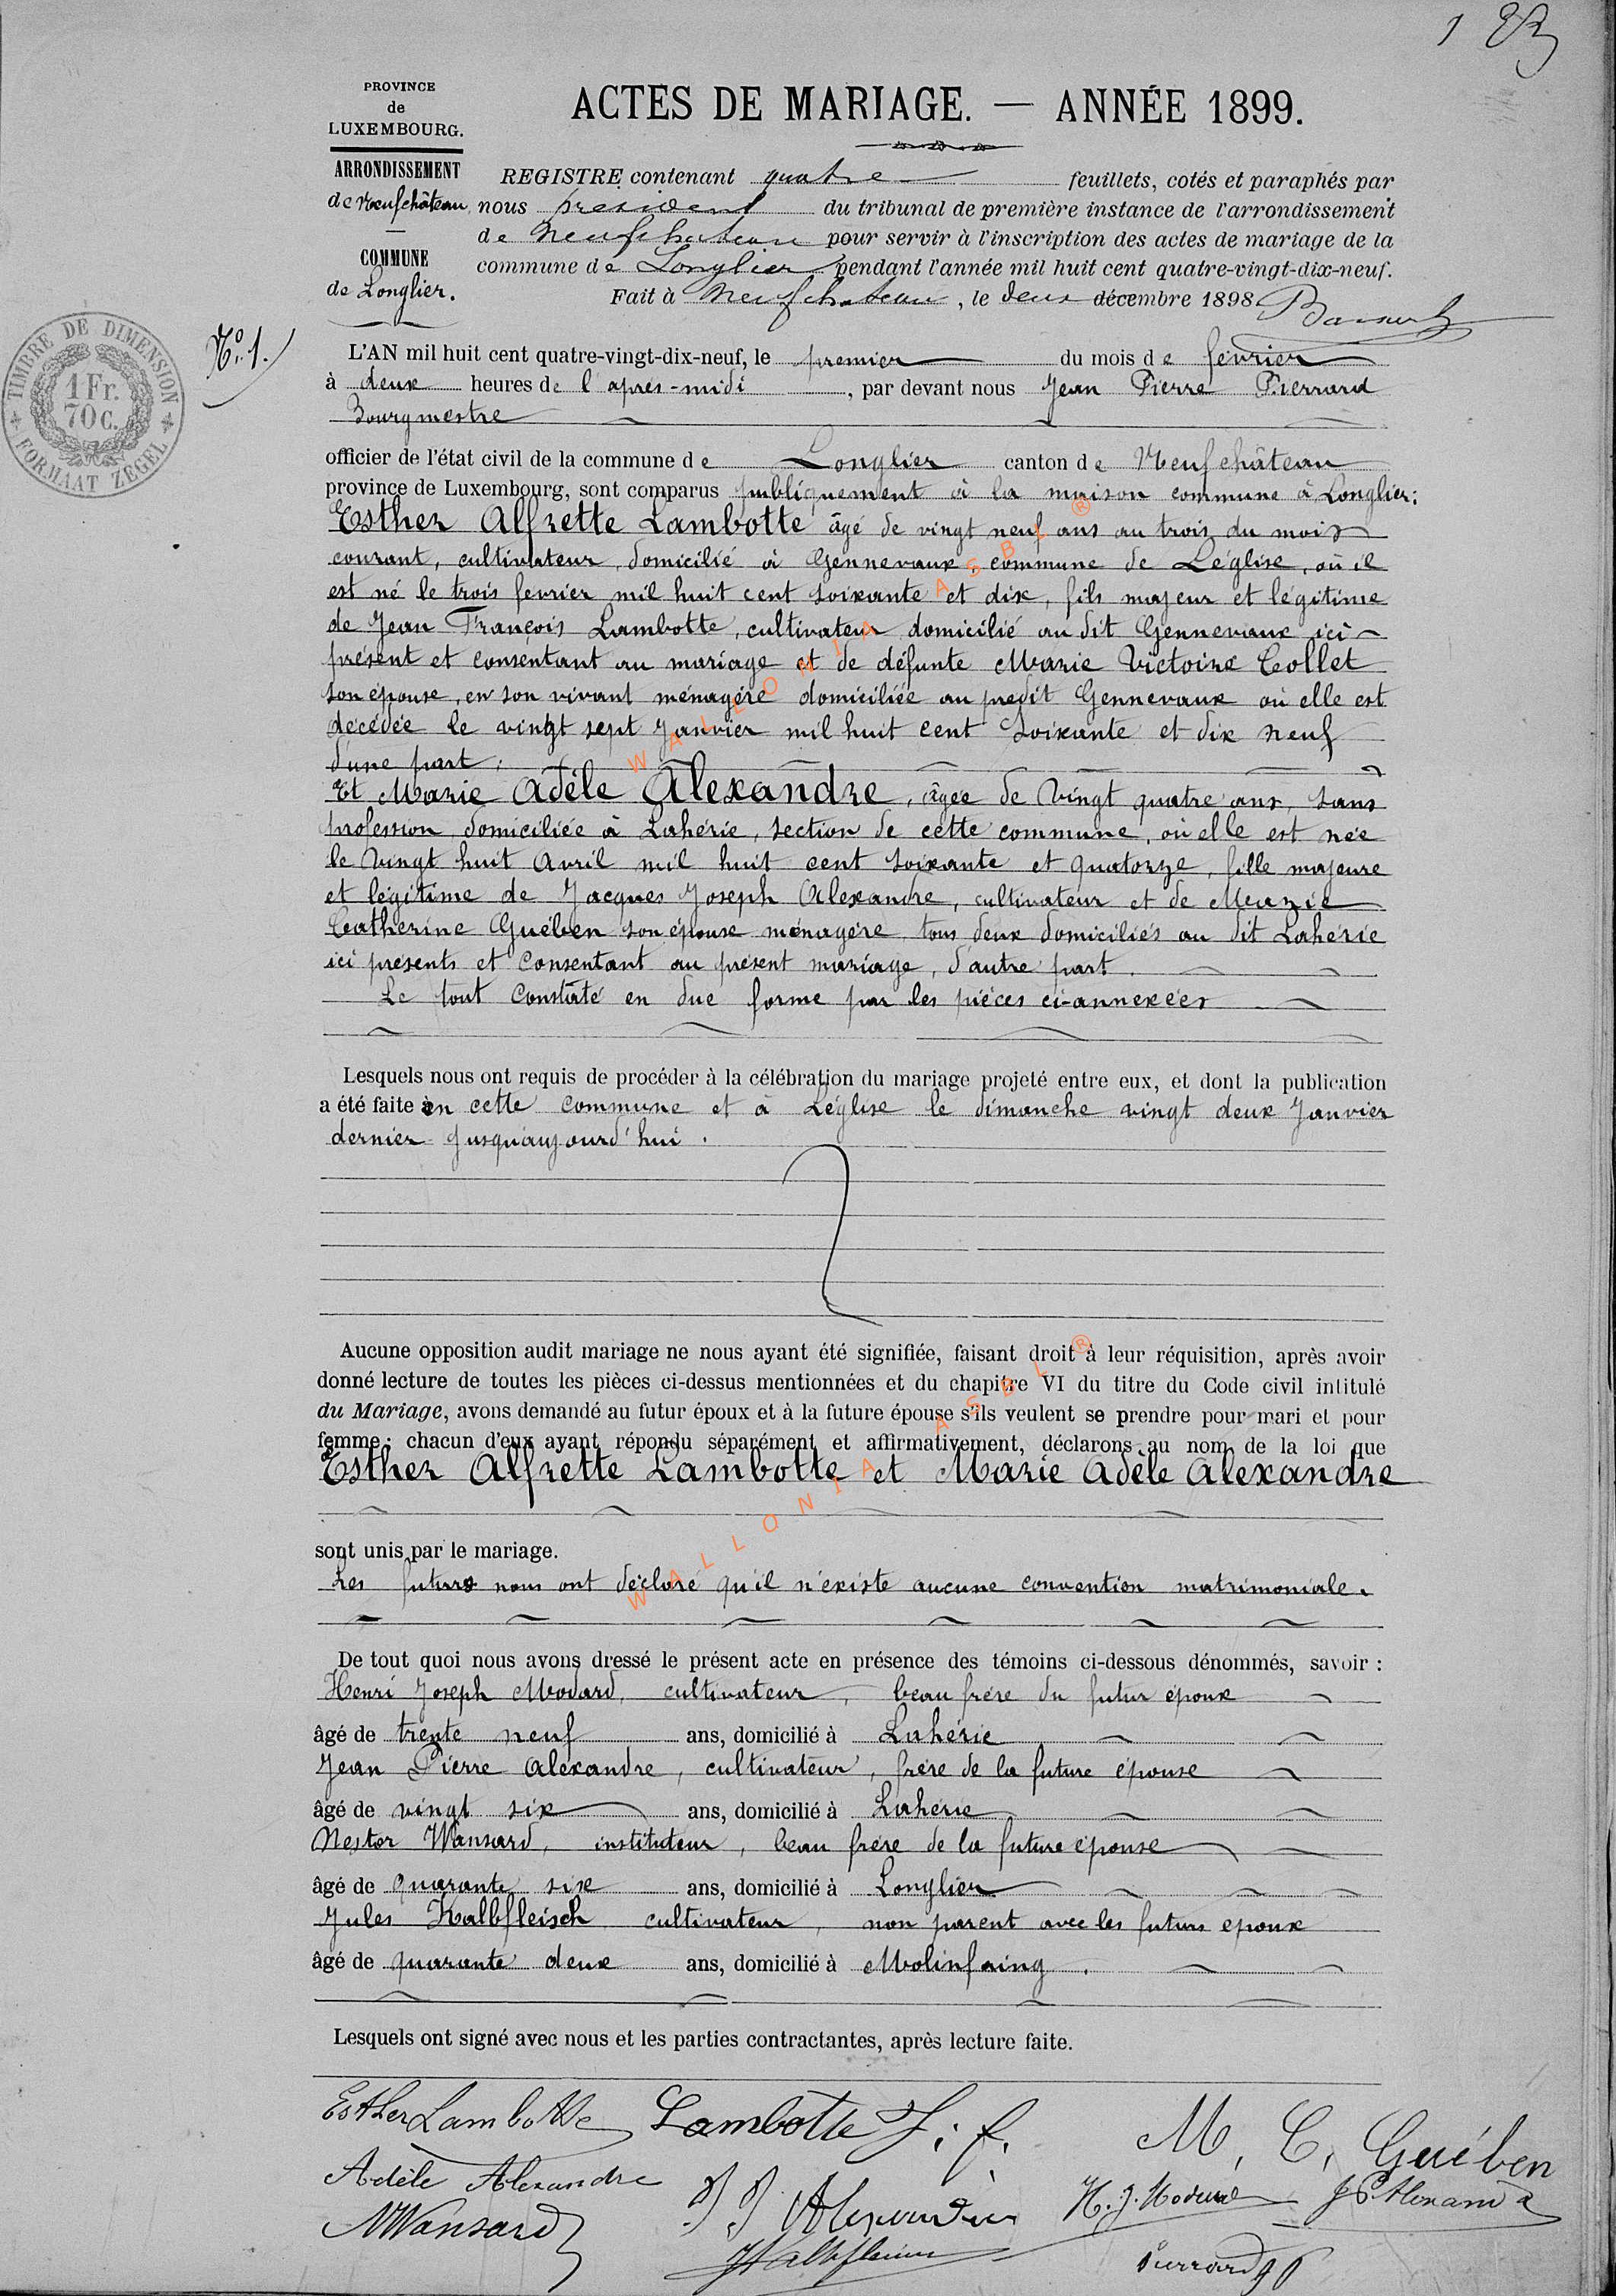 1 
PROVINCE
de
LUXEMBOURG.
ARRONDISSEMENT
de Neufchâteau
COMMUNE
de Longlier.
ACTES DE MARIAGE. — ANNÉE 1899.
REGISTRE contenant quatre feuillets, cotés et paraphés par
nous président du tribunal de première instance de l'arrondissement
de Neufchateau pour servir à l'inscription des actes de mariage de la
commune de Longlier pendant l'année mil huit cent quatre-vingt-dix-neuf.
Fait à Neufchateau, le deux décembre 1898.
TIMBRE DE DIMENSION
1 Fr.
70 c.
FORMAAT ZEGEL
No. 1.
L'AN mil huit cent quatre-vingt-dix-neuf, le premier du mois de février
à deux heures de l'après-midi, par devant nous Jean Pierre Pierrard
Bourgmestre
officier de l'état civil de la commune de Longlier canton de Neufchâteau
province de Luxembourg, sont comparus publiquement à la maison commune à Longlier:
Esther Alfrette Lambotte, âgé de vingt neuf ans au trois du mois
courant, cultivateur, domicilié à Gennevaux, commune de Léglise, où il
est né le trois fevrier mil huit cent soixante et dix, fils majeur et légitime
de Jean François Lambotte, cultivateur domicilié au dit Gennevaux ici
présent et consentant au mariage et de défunte Marie Victoire Collet
son épouse, en son vivant ménagère domiciliée au predit Gennevaux où elle est
décédée le vingt sept Janvier mil huit cent Soixante et dix neuf
d'une part;
Et Marie Adèle Alexandre, âgée de Vingt quatre ans, sans
profession domiciliée à Lahérie, section de cette commune, où elle est née
le Vingt huit Avril mil huit cent soixante et quatorze, fille majeure
et légitime de Jacques Joseph Alexandre, cultivateur et de Marie
Catherine Guében son épouse ménagère tous deux domiciliés au dit Lahérie
ici présents et Consentant au présent mariage, d'autre part.
Le tout Constaté en due forme par les pièces ci-annexées
Lesquels nous ont requis de procéder à la célébration du mariage projeté entre eux, et dont la publication
a été faite en cette commune et à Léglise le dimanche vingt deux Janvier
dernier jusqu'aujourd'hui.
Aucune opposition audit mariage ne nous ayant été signifiée, faisant droit à leur réquisition, après avoir
donné lecture de toutes les pièces ci-dessus mentionnées et du chapitre VI du titre du Code civil intitulé
du Mariage, avons demandé au futur époux et à la future épouse s'ils veulent se prendre pour mari et pour
femme; chacun d'eux ayant répondu séparément et affirmativement, déclarons au nom de la loi que
Esther Alfrette Lambotte et Marie Adèle Alexandre
sont unis par le mariage.
Les futurs nous ont déclaré qu'il n'existe aucune convention matrimoniale.
De tout quoi nous avons dressé le présent acte en présence des témoins ci-dessous dénommés, savoir :
Henri Joseph Modard, cultivateur, beau frère du futur époux
âgé de trente neuf ans, domicilié à Lahérie
Jean Pierre Alexandre, cultivateur, frère de la future épouse
âgé de vingt six ans, domicilié à Lahérie
Nestor Wansard, instituteur, beau frère de la future épouse
âgé de quarante six ans, domicilié à Longlier
Jules Kalbfleisch cultivateur, non parent avec les futurs epoux
âgé de quarante deux ans, domicilié à Molinfaing.
Lesquels ont signé avec nous et les parties contractantes, après lecture faite.
Esther Lambotte Lambotte J. f. M, C, Guében
Adèle Alexandre J J Alexandre H. J. Modard J P Alexandre
N Wansard J Kalbfleisch Pierrard J P
WALLONIA ASBL ®
WALLONIA ASBL ®